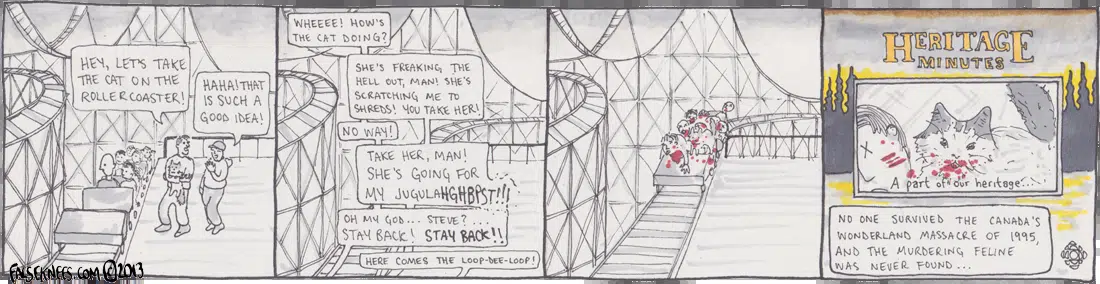 HEY, LET'S TAKE
THE CAT ON THE
ROLLERCOASTER!
HAHA! THAT
IS SUCH A
GOOD IDEA!
WHEEEE! HOW'S
THE CAT DOING?
SHE'S FREAKING THE
HELL OUT, MAN! SHE'S
SCRATCHING ME TO
SHREDS! YOU TAKE HER!
NO WAY!
TAKE HER, MAN!
SHE'S GOING FOR
MY JUGULAHGHBPST!!!
OH MY GOD... STEVE?...
STAY BACK! STAY BACK!!
HERE COMES THE LOOP-DEE-LOOP!
HERITAGE
MINUTES
A part of our heritage...
NO ONE SURVIVED THE CANADA'S
WONDERLAND MASSACRE OF 1995,
AND THE MURDERING FELINE
WAS NEVER FOUND...
FALSEKNEES.COM ©2013